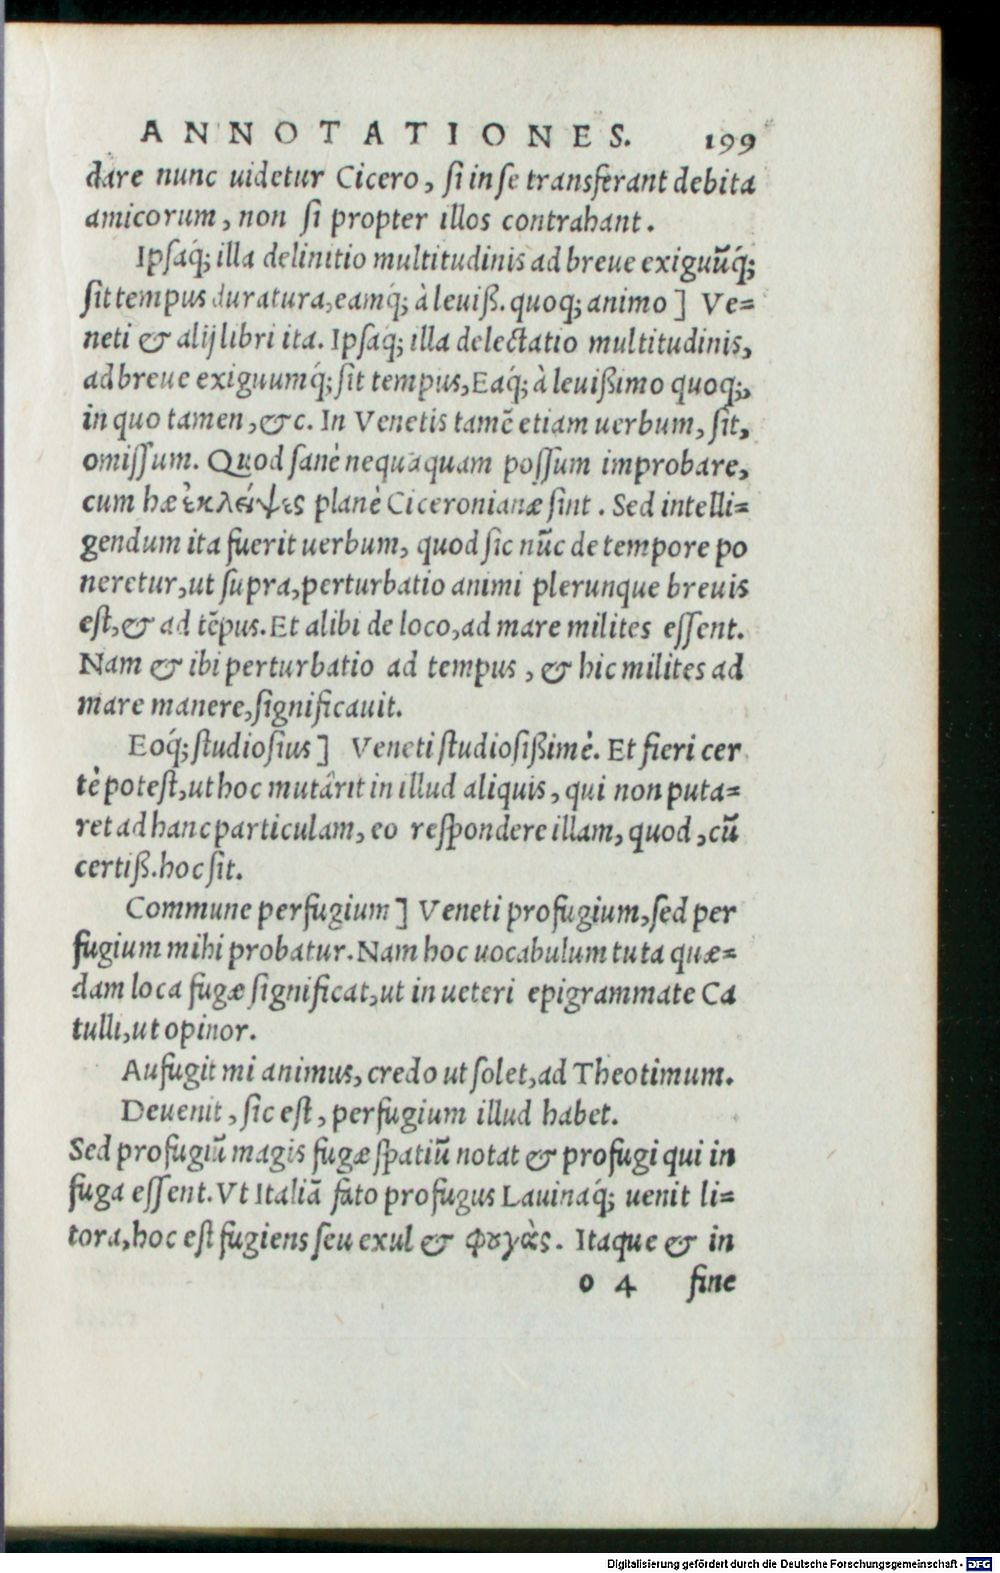 ANNOTATIONES. 199
dare nunc uidetur Cicero, ſi in ſe transferant debita
amicorum, non ſi propter illos contrahant.
Ipſaq́; illa delinitio multitudinis ad breue exiguūq́;
ſit tempus duratura, eamq́; à leuiß. quoq; animo] Ve=
neti & alij libri ita. Ipſaq́; illa delectatio multitudinis,
ad breue exiguumq́; ſit tempus, Eaq́; à leuißimo quoq;,
in quo tamen, &c. In Venetis tamē etiam uerbum, ſit,
omiſſum. Quod ſanè nequaquam poſſum improbare,
cum hæ ἐκλείψεις planè Ciceronianæ ſint. Sed intelli=
gendum ita fuerit uerbum, quod ſic nūc de tempore po
neretur, ut ſupra, perturbatio animi plerunque breuis
eſt, & ad tēpus. Et alibi de loco, ad mare milites eſſent.
Nam & ibi perturbatio ad tempus, & hic milites ad
mare manere, ſignificauit.
Eoq́; ſtudioſius] Veneti ſtudioſißimè. Et fieri cer
tè poteſt, ut hoc mutârit in illud aliquis, qui non puta=
ret ad hanc particulam, eo reſpondere illam, quod, cū
certiß. hoc ſit.
Commune perfugium] Veneti profugium, ſed per
fugium mihi probatur. Nam hoc uocabulum tuta quæ=
dam loca fugæ ſignificat, ut in ueteri epigrammate Ca
tulli, ut opinor.
Aufugit mi animus, credo ut ſolet, ad Theotimum.
Deuenit, ſic eſt, perfugium illud habet.
Sed profugiū magis fugæ ſpatiū notat & profugi qui in
fuga eſſent. Vt Italiā fato profugus Lauinaq́; uenit li=
tora, hoc eſt fugiens ſeu exul & φυγὰς. Itaque & in
o 4 fine
Digitalisierung gefördert durch die Deutsche Forschungsgemeinschaft - DFG